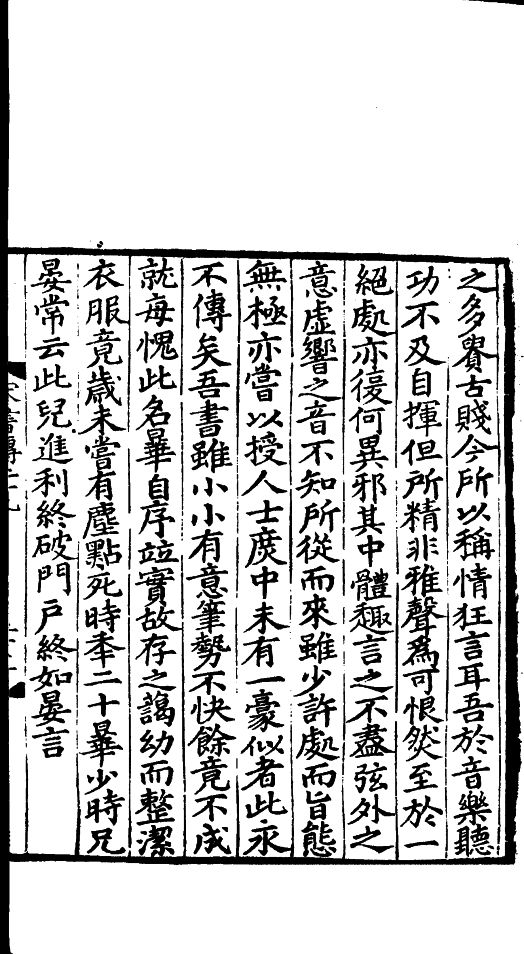 之多貴古賤今所以稱情狂言耳吾於音樂聽
功不及自揮但所精非雅聲為可恨然至於一
絕處亦復何異邪其中體趣言之不盡弦外之
意虛響之音不知所從而來雖少許處而旨態
無極亦嘗以授人士庻中未有一豪似者此永
不傳矣吾書雖小小有意筆勢不快餘竟不成
就每愧此名曅自序竝實故存之藹幼而整潔
衣服竟歳未嘗有塵點死時年二十曅少時兄
晏常云此兒進利終破門戸終如晏言
宋書傳二十九